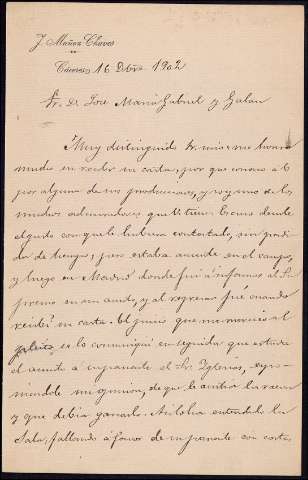 J. Muñoz Chaves
Cáceres 16 Dbre 1902
Sr. D. José María Gabriel y Galan
Muy distinguido Sr. mio: me honró
mucho en recibir su carta, por que conozco a V.
por alguna de sus producciones, y soy uno de los
muchos admiradores que V. tiene
el gusto con que le hubiera contestado, sin perdi
da de tiempo; pero estaba ausente en el campo,
y luego en Madrid donde fuí a informar al Su
premo en un asunto, y al regreso fué cuando
recibí su carta. El juicio que me mereció el
pleito, se lo comuniqué en seguida que estudié
el asunto a informante el Sr. Iglesias, expo-
niéndole mi opinion, de que le asistía la razon
y que debía ganarlo. Asi lo ha entendido la
Sala, fallando á favor de informante con costas